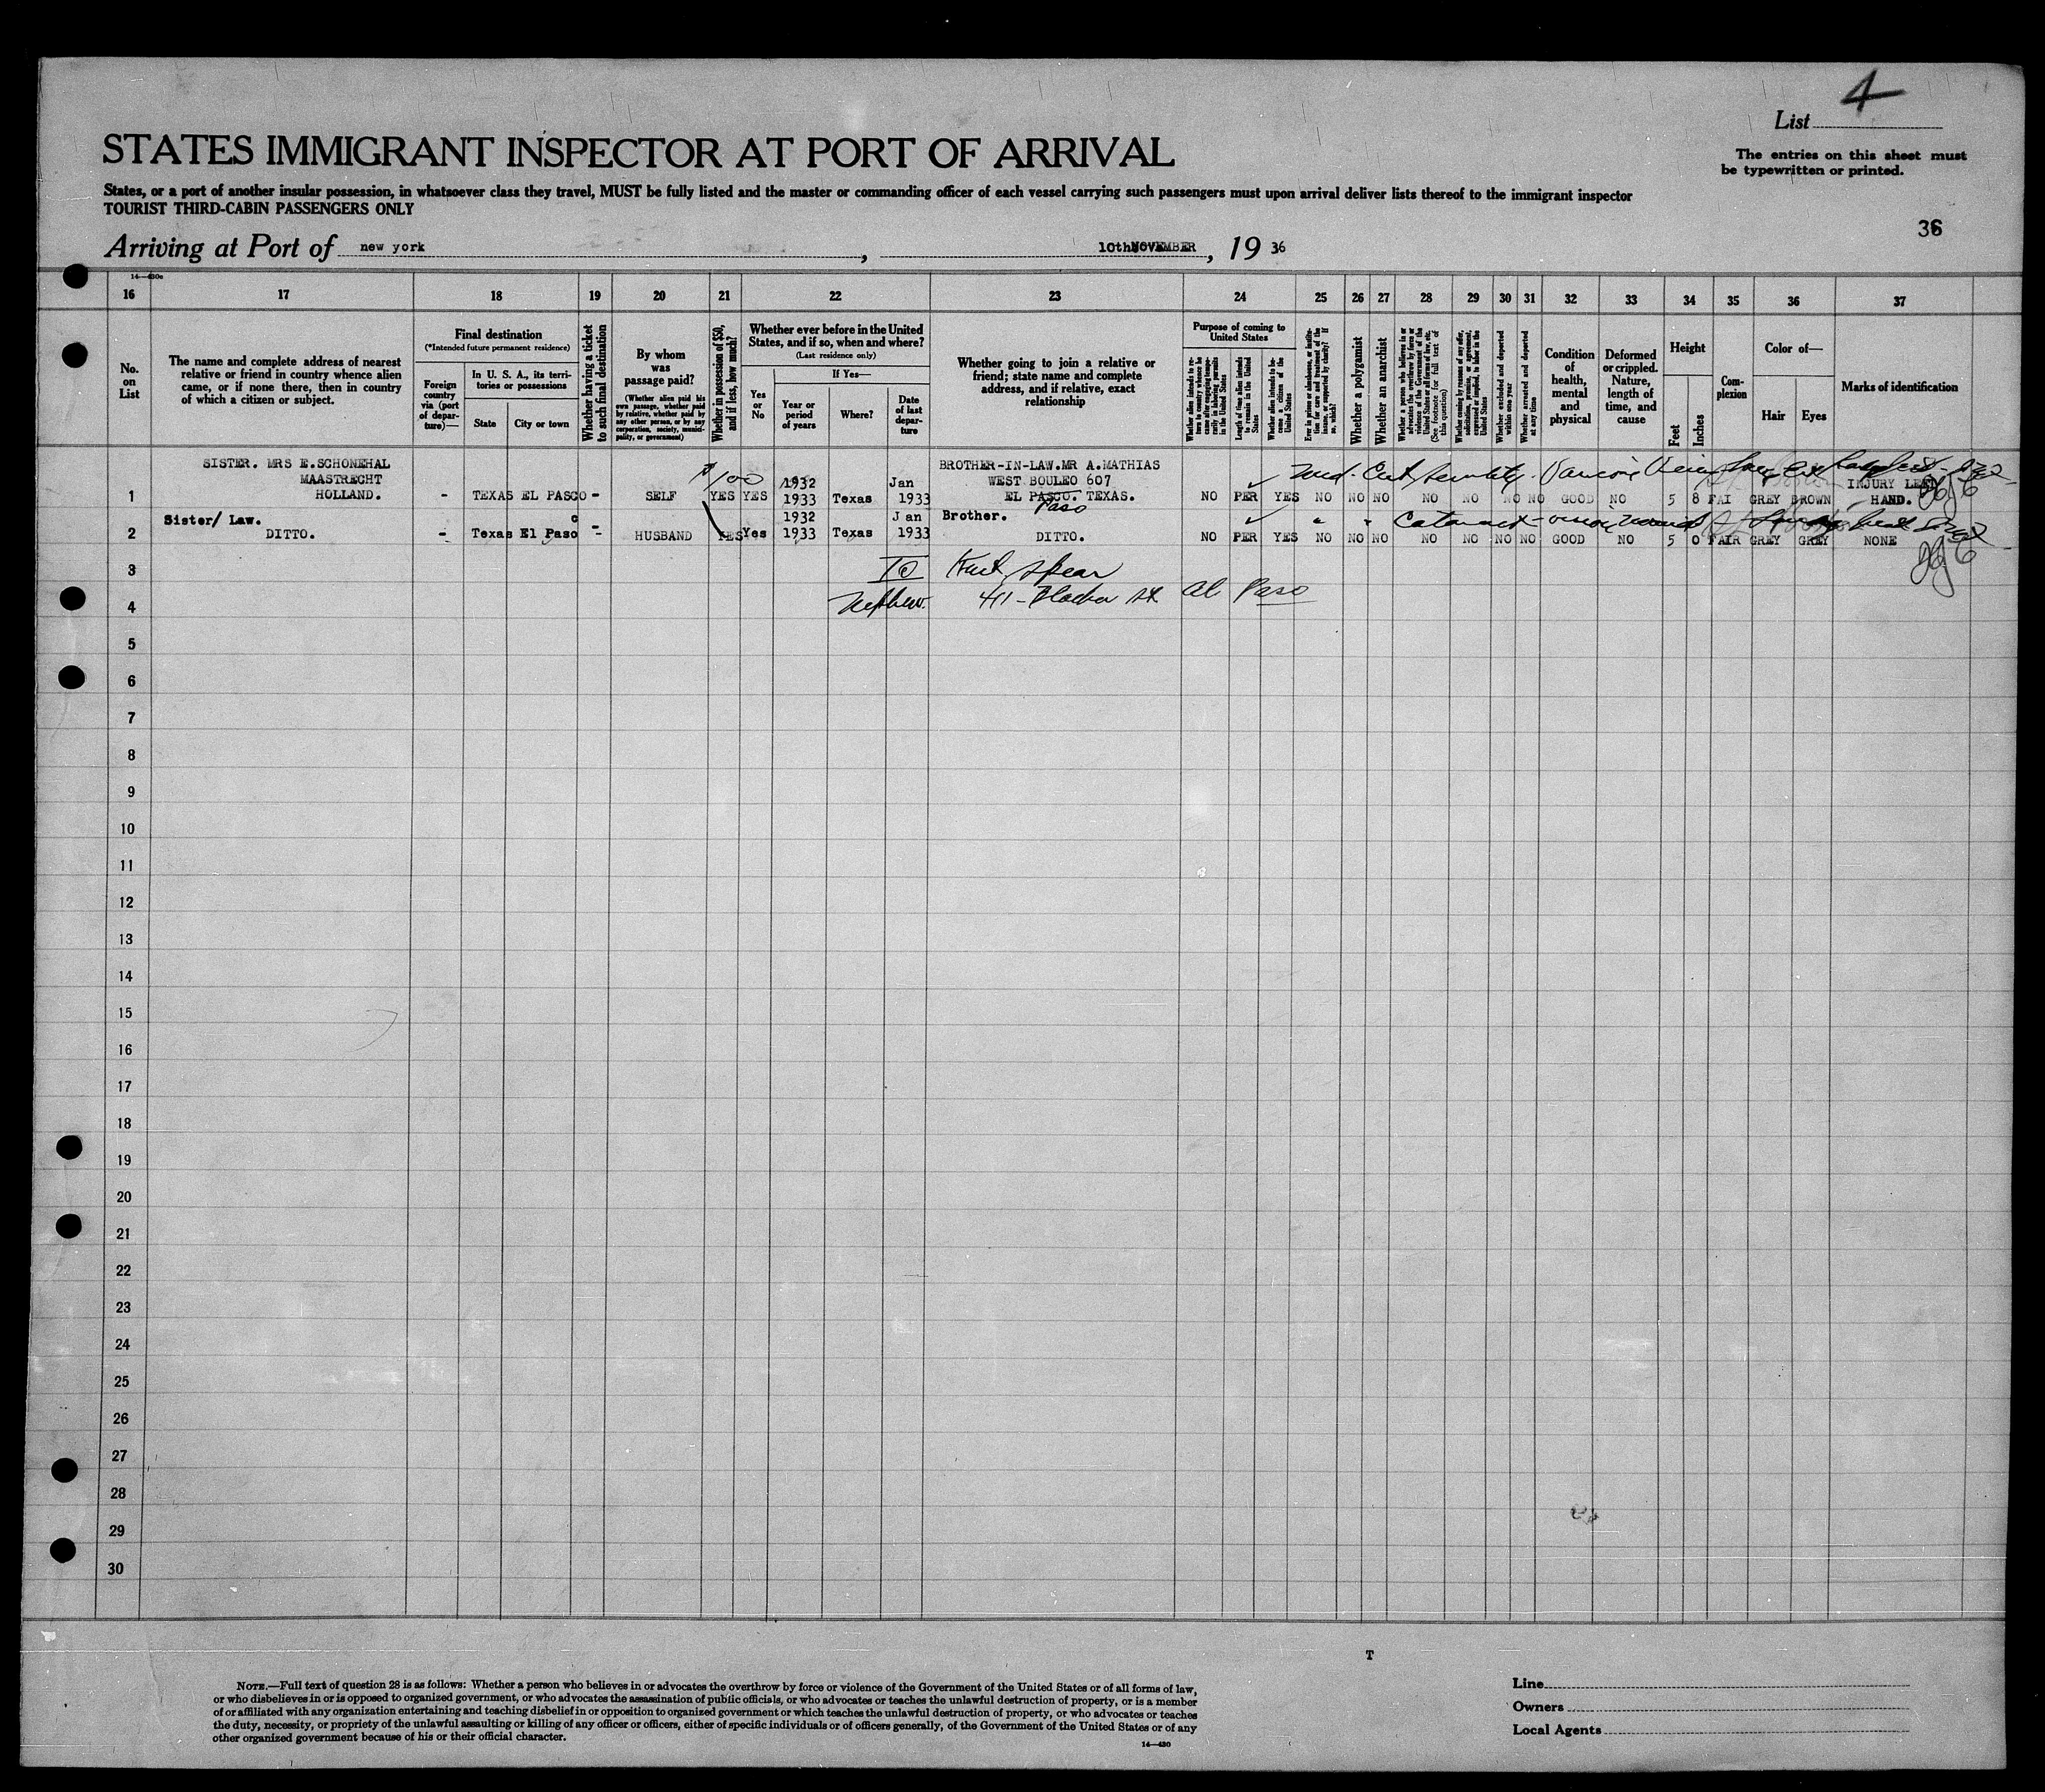 4
List
STATES IMMIGRANT INSPECTOR AT PORT OF ARRIVAL
The entries on this sheet must
be typewritten or printed.
States, or a port of another insular possession, in whatsoever class they travel, MUST be fully listed and the master or commanding officer of each vessel carrying such passengers must upon arrival deliver lists thereof to the immigrant inspector
TOURIST THIRD-CABIN PASSENGERS ONLY
36
Arriving at Port of new york, 10th NOVEMBER, 19 36
14—430e
16 17 18 19 20 21 22 23 24 25 26 27 28 29 30 31 32 33 34 35 36 37
No.
on
List
The name and complete address of nearest
relative or friend in country whence alien
came, or if none there, then in country
of which a citizen or subject.
Final destination
(*Intended future permanent residence)
Foreign
country
via (port
of depar-
ture)—
In U. S. A., its terri-
tories or possessions
State
City or town
Whether having a ticket
to such final destination
By whom
was
passage paid?
(Whether alien paid his
own passage, whether paid
by relative, whether paid by
any other person, or by any
corporation, society, munici-
pality, or government)
Whether in possession of $50,
and if less, how much?
Whether ever before in the United
States, and if so, when and where?
(Last residence only)
Yes
or
No
If Yes—
Year or
period
of years
Where?
Date
of last
depar-
ture
Whether going to join a relative or
friend; state name and complete
address, and if relative, exact
relationship
Purpose of coming to
United States
Whether alien intends to re-
turn to country whence he
came after engaging tempo-
rarily in laboring pursuits
in the United States
Length of time alien intends
to remain in the United
States
Whether alien intends to be-
come a citizen of the
United States
Ever in prison or almshouse, or institu-
tion for care and treatment of the
insane, or supported by charity? If
so, which?
Whether a polygamist
Whether an anarchist
Whether a person who believes in or
advocates the overthrow by force or
violence of the Government of the
United States or all forms of law, etc.
(See footnote for full text of
this question)
Whether coming by reason of any offer,
solicitation, promise, or agreement,
expressed or implied, to labor in the
United States
Whether excluded and deported
within one year
Whether arrested and deported
at any time
Condition
of
health,
mental
and
physical
Deformed
or crippled.
Nature,
length of
time, and
cause
Height
Feet
Inches
Com-
plexion
Color of—
Hair
Eyes
Marks of identification
SISTER. MRS E.SCHONEHAL
MAASTRECHT
HOLLAND.
1 - TEXAS EL PASCO - SELF $100 YES YES 1932 1933 Texas Jan 1933
BROTHER-IN-LAW.MR A.MATHIAS
WEST BOULEO 607
EL PASCO. TEXAS.
Paso
NO PER YES NO NO NO NO NO NO NO GOOD NO 5 8 FAI GREY BROWN
Med. Cert
INJURY LEFT
HAND.
Sister/ Law.
2 DITTO. - Texas El Paso - HUSBAND YES Yes 1932 1933 Texas Jan 1933
Brother.
DITTO.
NO PER YES NO NO NO NO NO NO NO GOOD NO 5 0 FAIR GREY GREY NONE
Cataract
3 To Kurt Spear
4 Nephew. 411 - St Al Paso
5
6
7
8
9
10
11
12
13
14
15
16
17
18
19
20
21
22
23
24
25
26
27
28
29
30
T
NOTE.—Full text of question 28 is as follows: Whether a person who believes in or advocates the overthrow by force or violence of the Government of the United States or of all forms of law,
or who disbelieves in or is opposed to organized government, or who advocates the assassination of public officials, or who advocates or teaches the unlawful destruction of property, or is a member
of or affiliated with any organization entertaining and teaching disbelief in or opposition to organized government or which teaches the unlawful destruction of property, or who advocates or teaches
the duty, necessity, or propriety of the unlawful assaulting or killing of any officer or officers, either of specific individuals or of officers generally, of the Government of the United States or of any
other organized government because of his or their official character.
14—430
Line
Owners
Local Agents